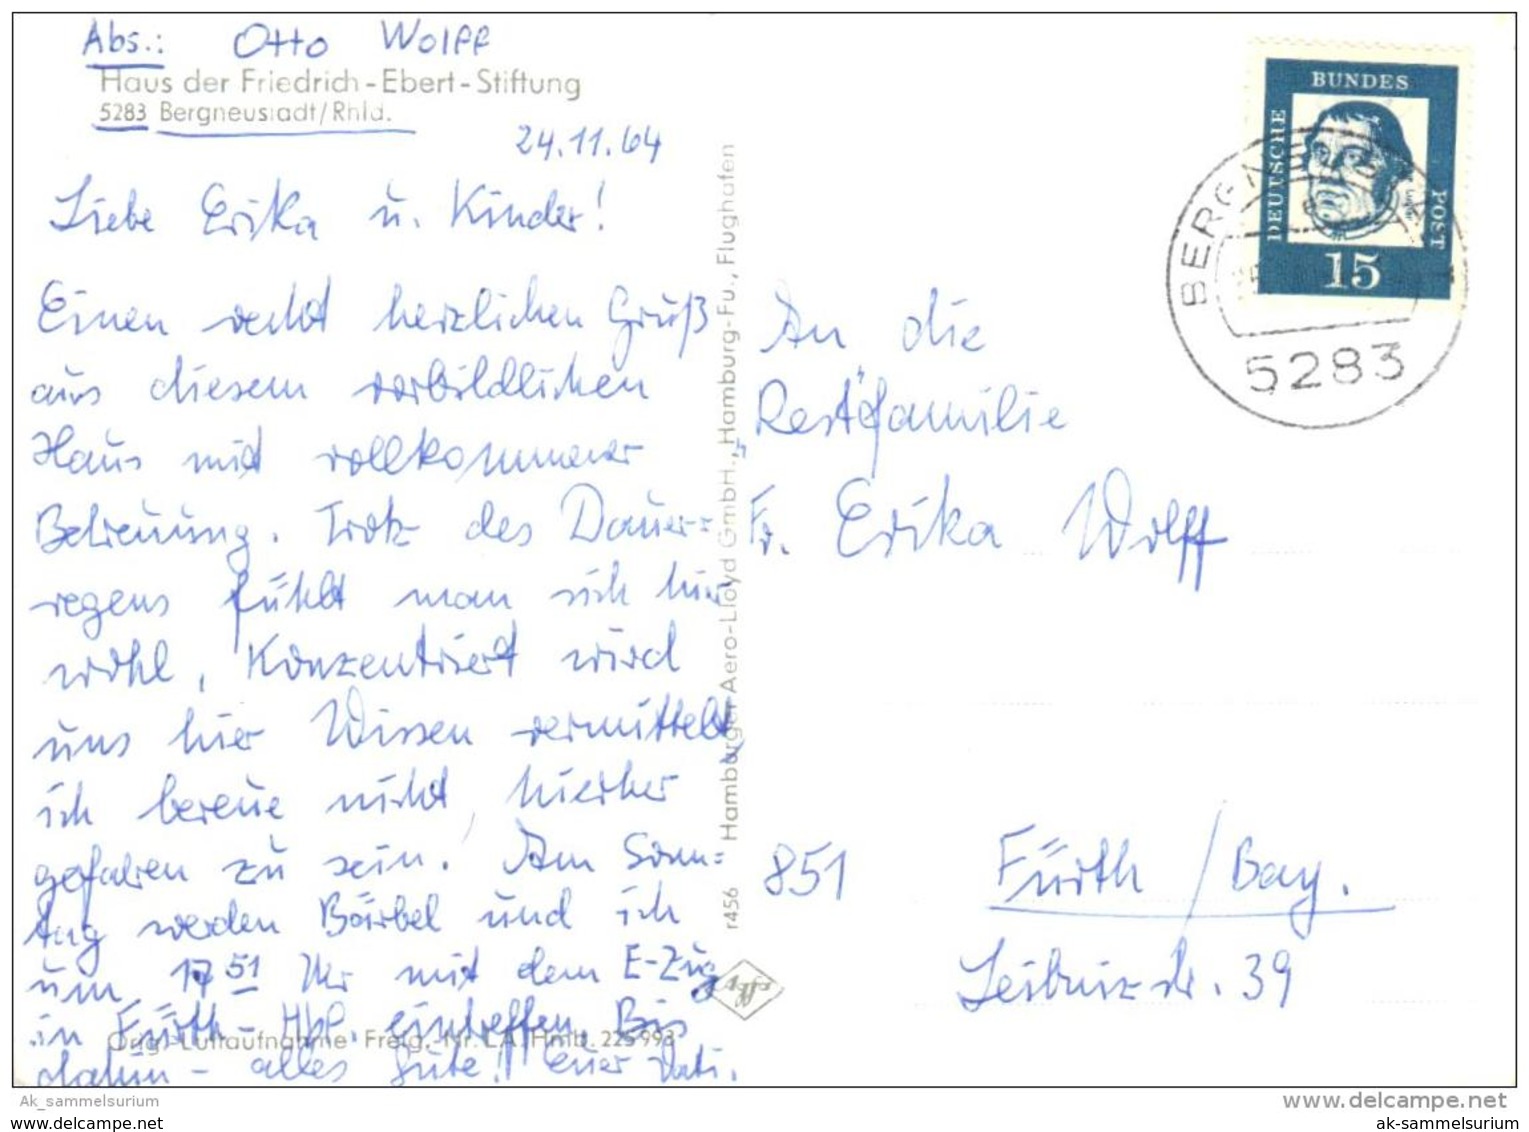 Abs.: Otto Wolff
Haus der Friedrich-Ebert-Stiftung
5283 Bergneustadt/Rhld.
24.11.64
Liebe Erika u. Kinder!
Einen recht herzlichen Gruß
aus diesem vorbildlichen
Haus mit vollkommener
Betreuung. Trotz des Dauer=
regens fühlt man sich hier
wohl, Konzentriert wird
uns hier Wissen vermittelt,
ich bereue nicht, hierher
gefahren zu sein. Am Sonn=
tag werden Bärbel und ich
um 17 51 Uhr mit dem E-Zug
in Fürth-Hbf. eintreffen. Bis
dahin - alles Gute! Euer Vati.
Orig.-Luftaufnahme Freig.-Nr. L.A. Hmb. 225993
r456 Hamburger Aero-Lloyd GmbH., Hamburg-Fu., Flughafen
Agfa
DEUTSCHE
BUNDES
POST
15
Luther
BERGNEUSTADT
5283
An die
„Rest"familie
Fr. Erika Wolff
851 Fürth / Bay.
Leibnizstr. 39
Ak_sammelsurium
www.delcampe.net
www.delcampe.net
ak-sammelsurium